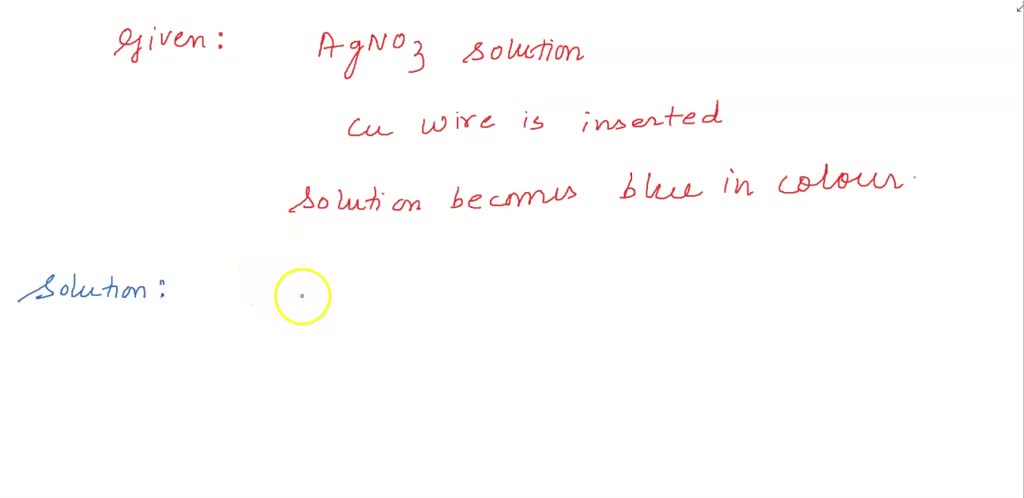 Given: AgNO3 solution
Cu wire is inserted
Solution becomes blue in colour.
Solution: